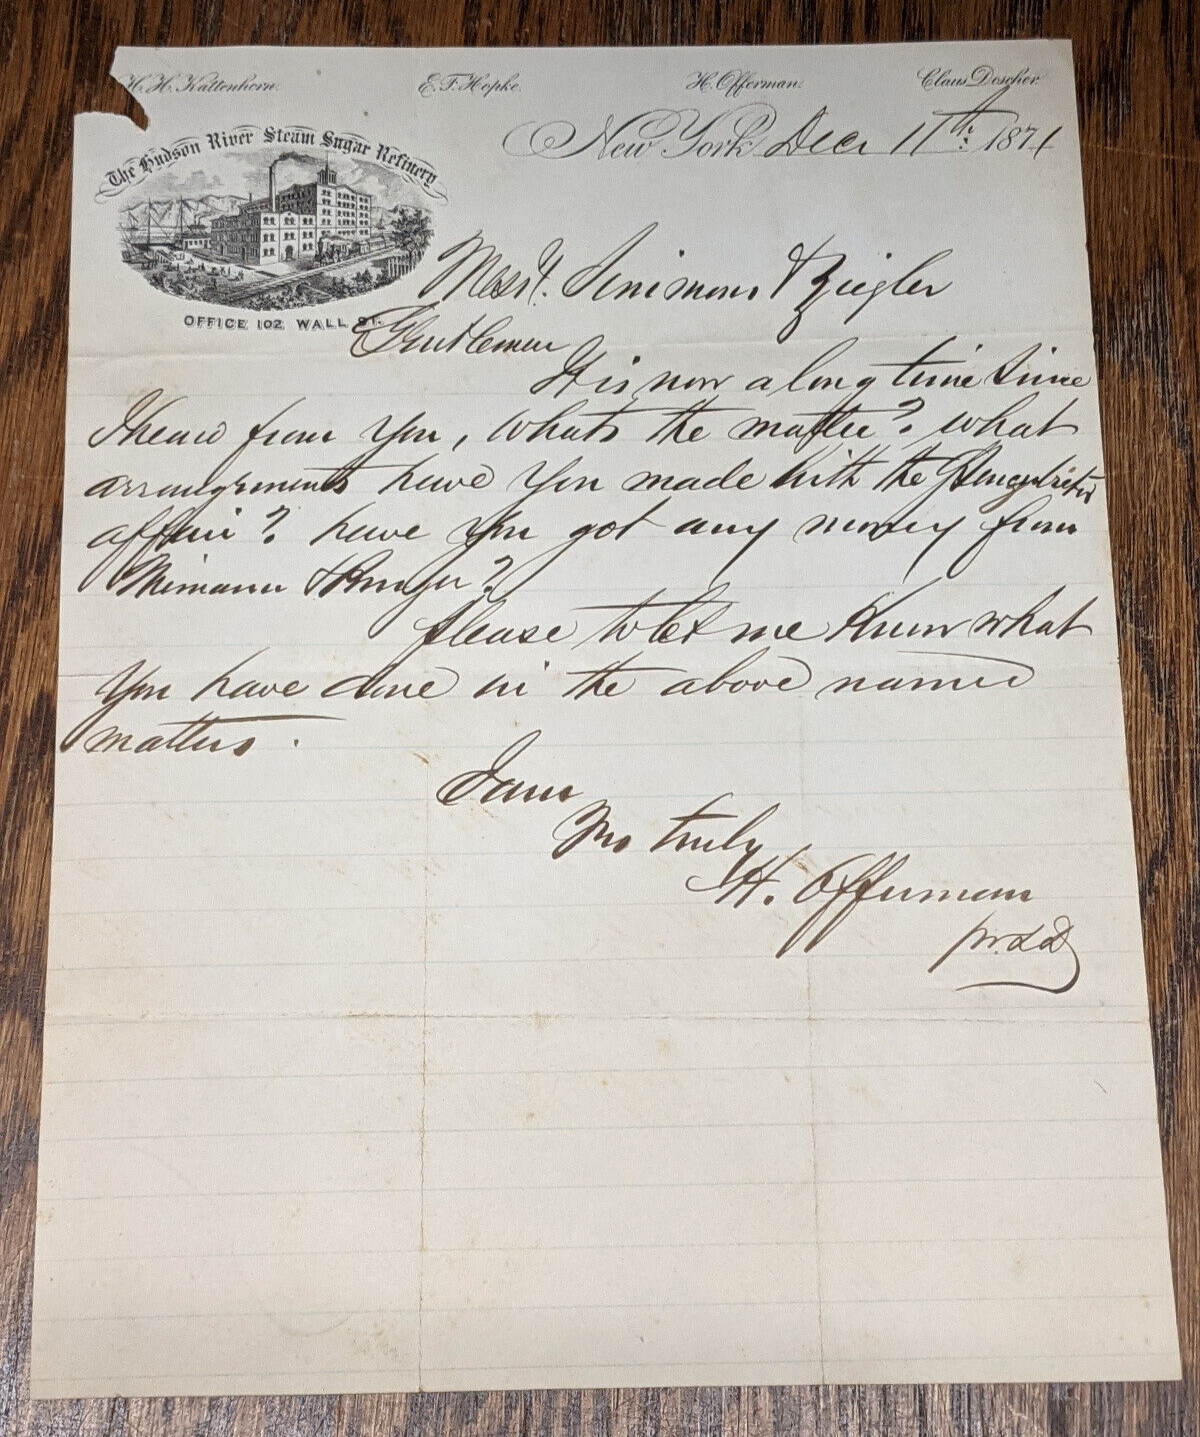 H. H. Kattenhorn. E. F. Hopke. H. Offerman. Claus Doscher.
The Hudson River Steam Sugar Refinery
OFFICE 102 WALL ST.
New York Decr 11th: 1871
Messrs. & Ziegler
Gentlemen
It is now a long time since
I heard from you, whats the matter? what
arrangements have you made with the
affair? have you got any money from
&
Please to let me know what
you have done in the above named
matters.
I am
truly
H. Offerman